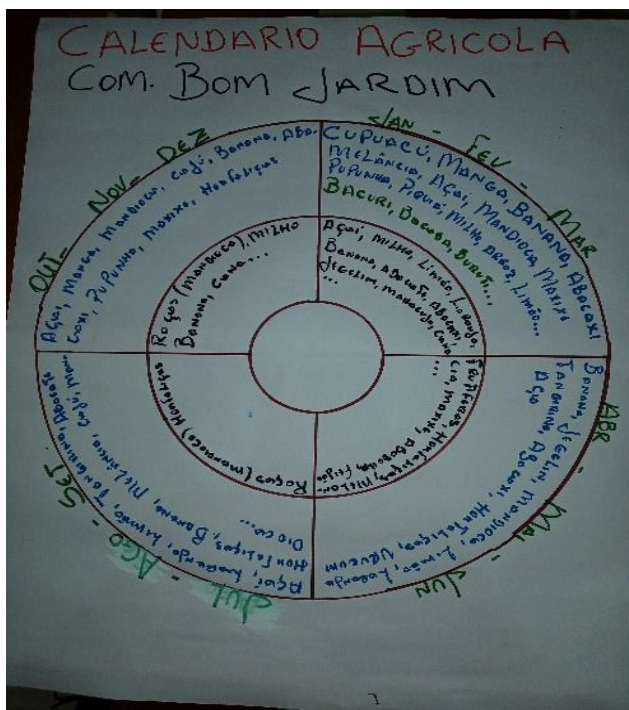 CALENDARIO AGRICOLA
COM. BOM JARDIM
JAN - FEV - MAR
CUPUACÚ, MANGA, BANANA, ABACAXI
MELÂNCIA, AÇAÍ, MANDIOCA, MAXIXE
PUPUNHA, PIQUIÁ, MILHO, ARROZ, LIMÃO...
BACURI, BACABA, BURUTI...
AÇAÍ, MILHO, LIMÃO, LARANJA,
BANANA, ABACATE, ABACAXI,
JEGELIM, MARACUJÁ, CANA
...
ABR - MAI - JUN
BANANA, JEGELIN, MANDIOCA, LIMÃO, LARANJA
TANGIRINA, ABACAXI, HORTALIÇAS, URUCUM
AÇAÍ
FRUTÍFERAS, HORTALIÇAS, MELAN-
CIA, MAXIXE, ABÓBORA, FEIJÃO
...
JUL - AGO - SET
AÇAÍ, LARANJA, LIMÃO, TANGIRINA, ABACATE
HORTALIÇAS, BANANA, MELÂNCIA, CAJÚ, MAN-
DIOCA...
ROÇAS (MANDIOCA) HORTALIÇAS
OUT- NOV- DEZ
AÇAÍ, MANGA, MANDIOCA, CAJÚ, BANANA, ABA-
CAXI, PUPUNHA, MAXIXE, HORTALIÇAS
ROÇAS (MANDIOCA), MILHO
BANANA, CANA...